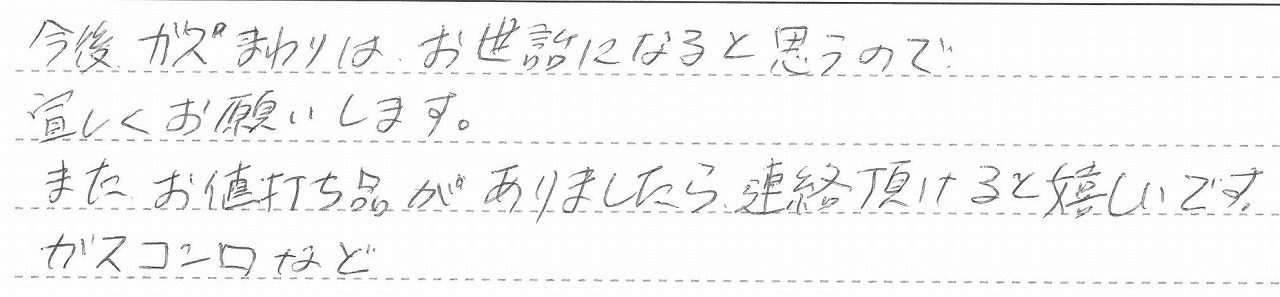 今後、ガスまわりは、お世話になると思うので
宜しくお願いします。
また、お値打ち品がありましたら、連絡頂けると嬉しいです。
ガスコンロなど